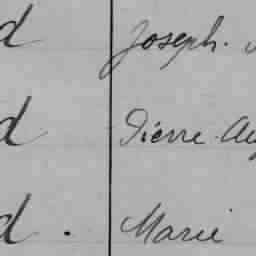 d Joseph.
d Pierre
d. Marie